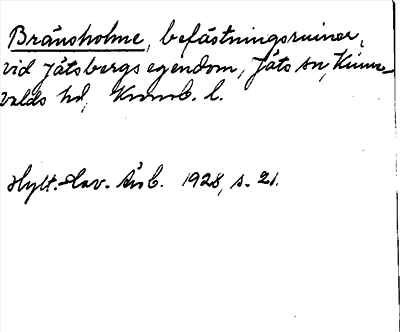 Bränsholme, befästningsruiner,
vid Jätsbergs egendom, Jäts sn, Kinne-
valds hd, Kronob. l.
Hylt.-Cav. Årsb. 1928, s. 21.